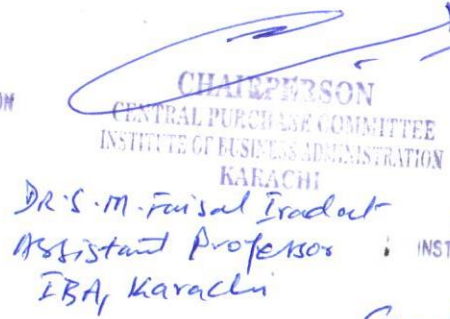 ON
CHAIRPERSON
CENTRAL PURCHASE COMMITTEE
INSTITUTE OF BUSINESS ADMINISTRATION
KARACHI
DR. S. M. Faisal Iradat
Assistant Professor
INST
IBA, Karachi